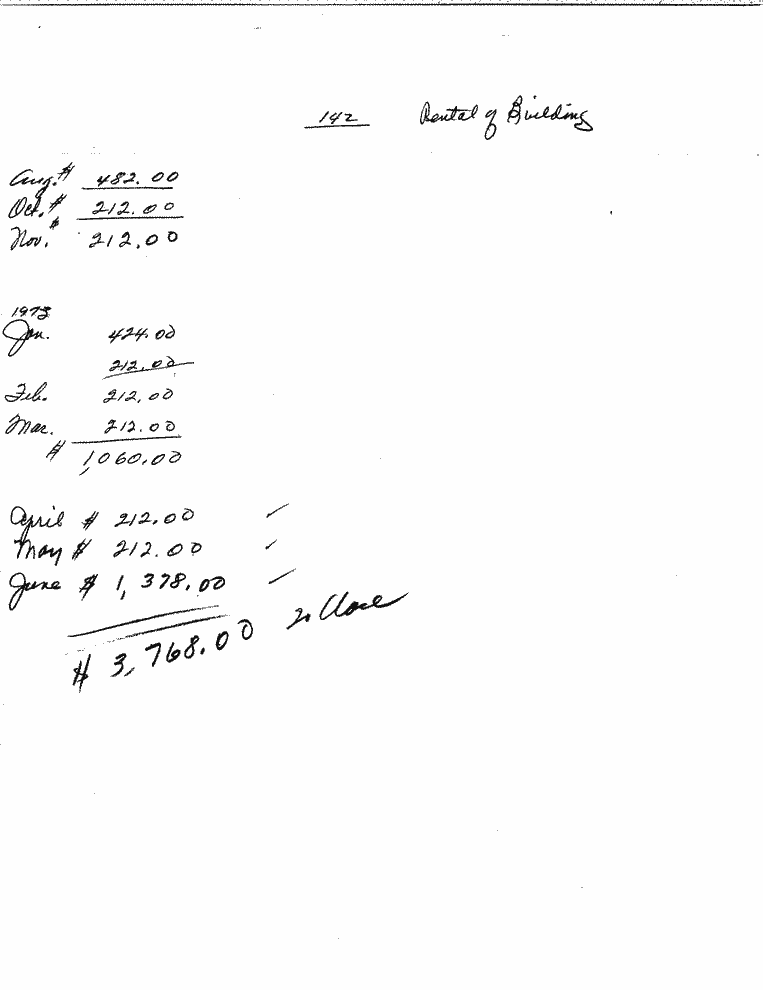 142 Rental of Building
Aug. $ 482.00
Oct. $ 212.00
Nov. $ 212.00
1973
Jan. 424.00
212.00
Feb. 212.00
Mar. 212.00
$ 1,060.00
April $ 212.00 ✓
May $ 212.00 ✓
June $ 1,378.00 ✓
$ 3,768.00 to Close